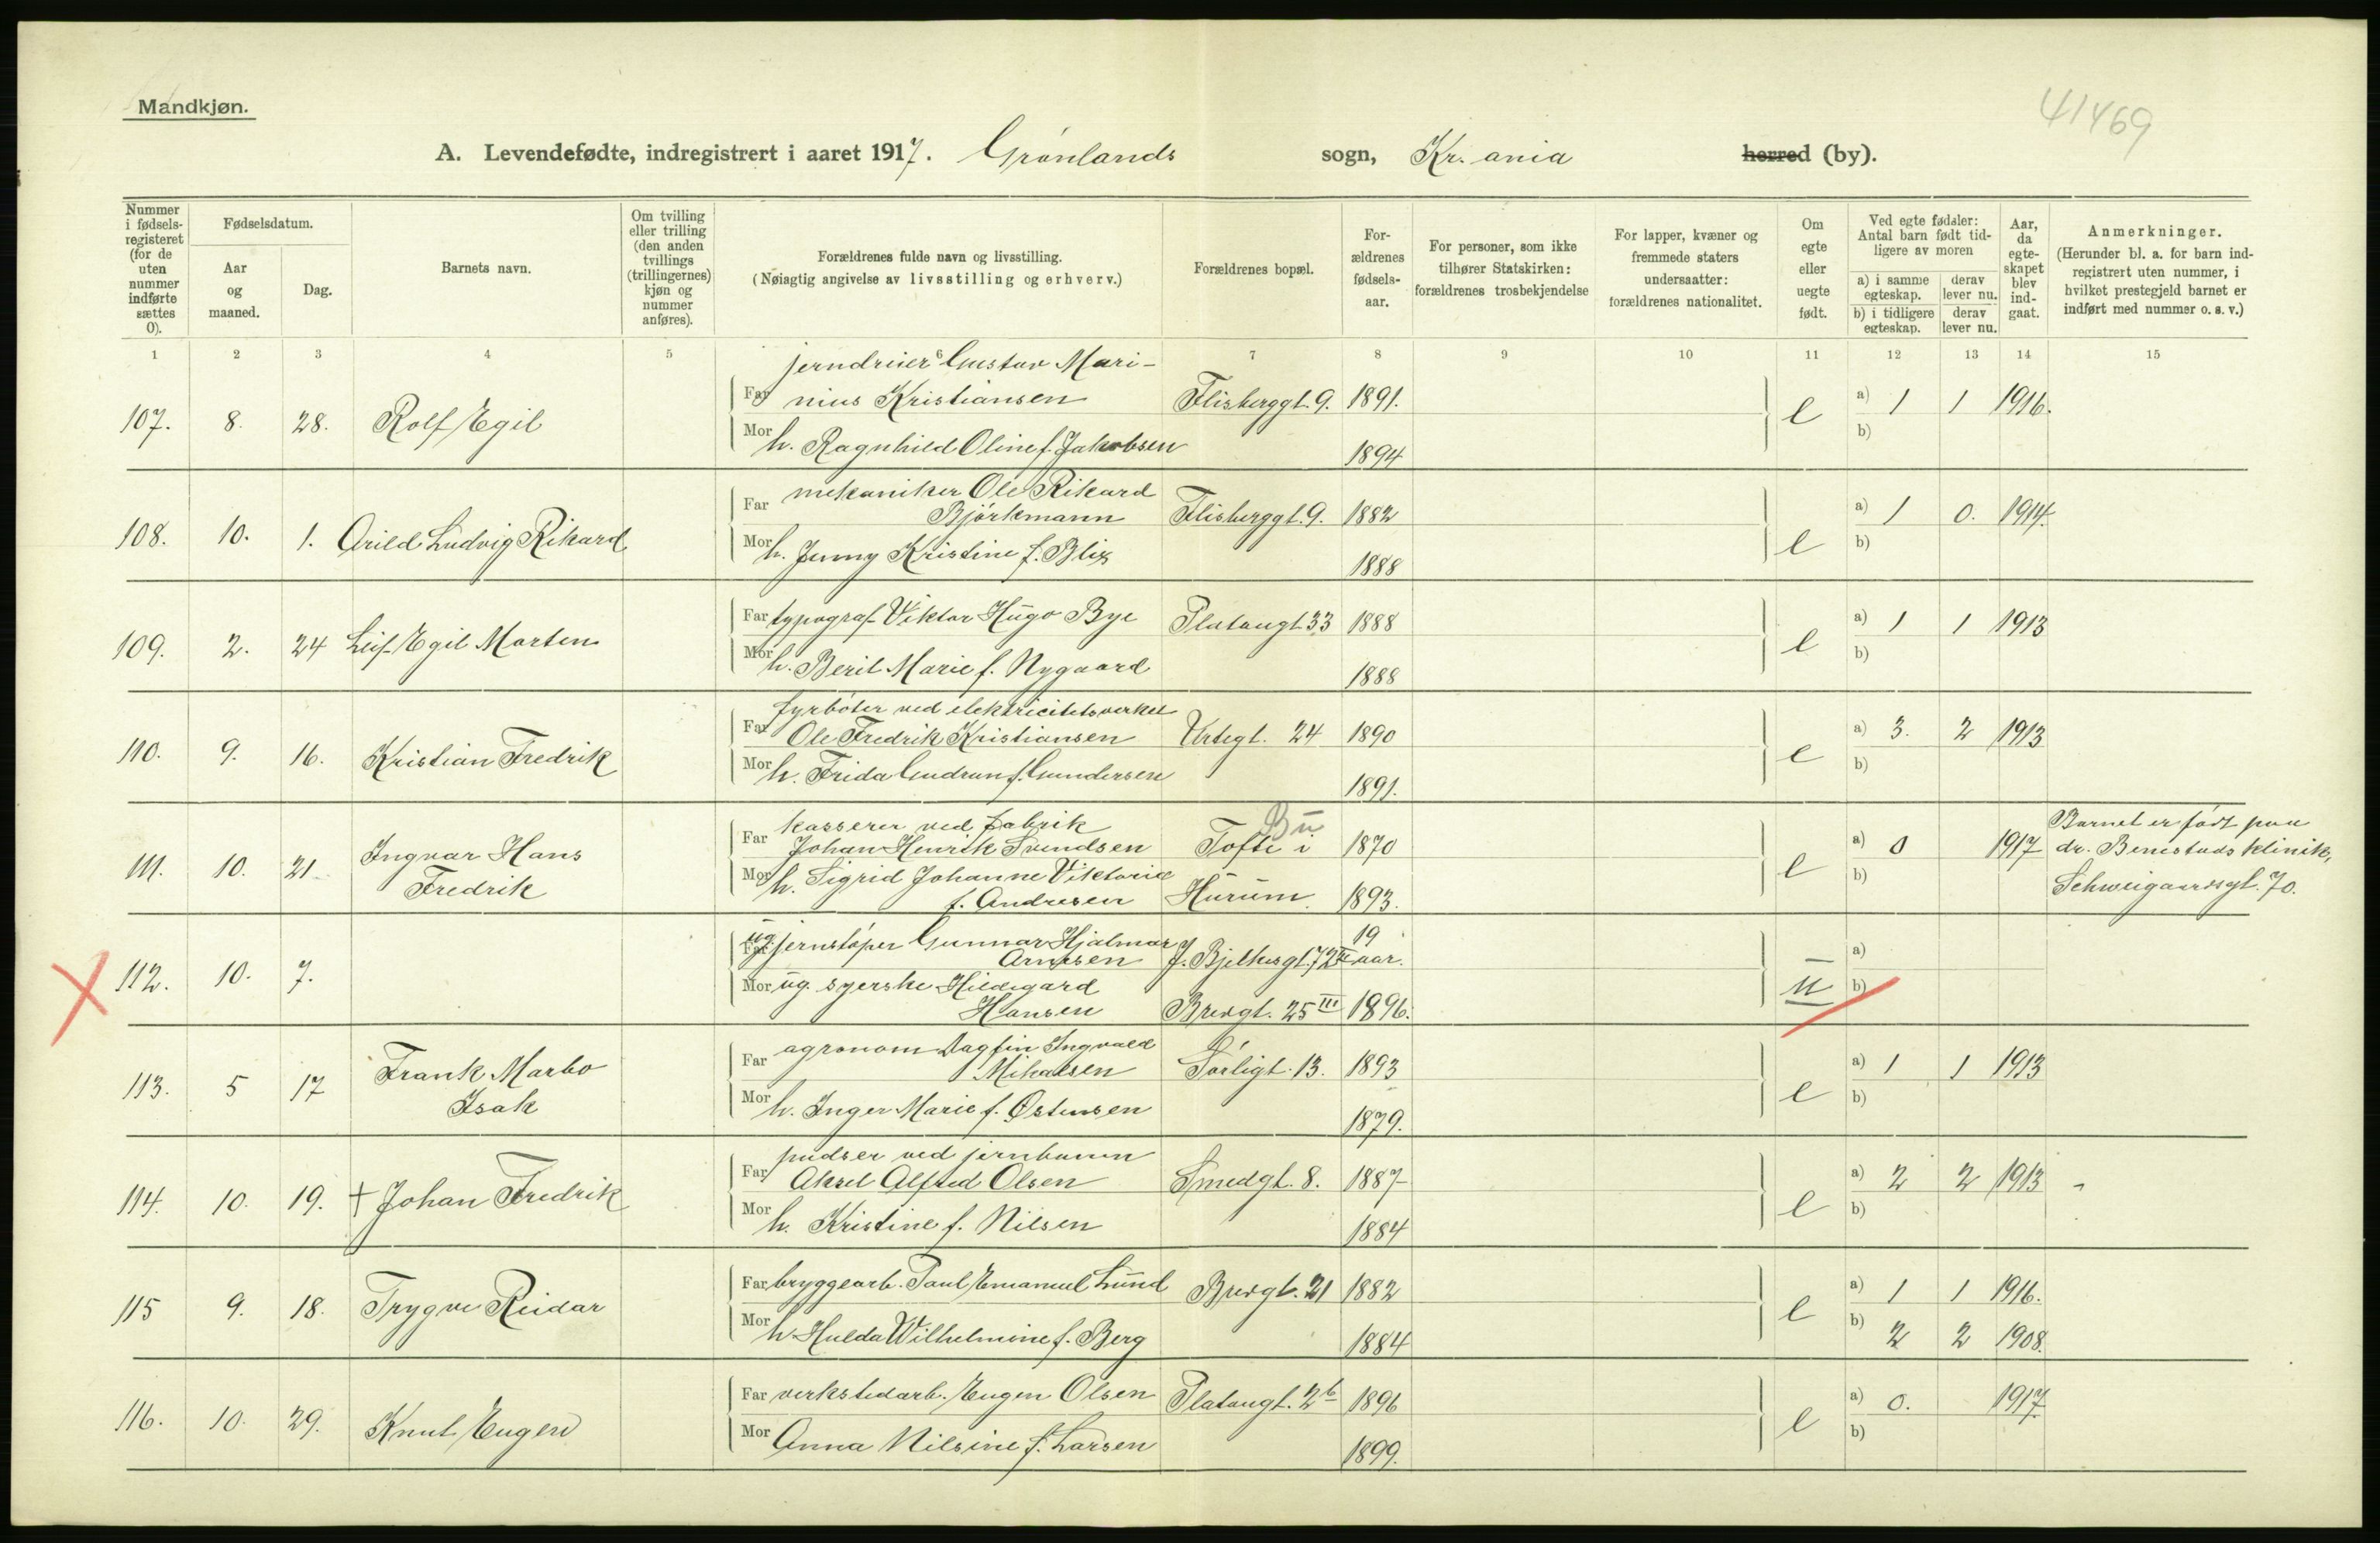 Mandkjøn.
41469
A. Levendefødte, indregistrert i aaret 1917. Grønlands sogn, Kr.ania herred (by).
Nummer i fødsels-registeret (for de uten nummer indførte sættes 0).
Fødselsdatum.
Aar og maaned.
Dag.
Barnets navn.
Om tvilling eller trilling (den anden tvillings (trillingernes) kjøn og nummer anføres).
Forældrenes fulde navn og livsstilling.
(Nøiagtig angivelse av livsstilling og erhverv.)
Forældrenes bopæl.
For-ældrenes fødsels-aar.
For personer, som ikke tilhører Statskirken: forældrenes trosbekjendelse
For lapper, kvæner og fremmede staters undersaatter: forældrenes nationalitet.
Om egte eller uegte født.
Ved egte fødsler: Antal barn født tid-ligere av moren
a) i samme egteskap.
derav lever nu.
b) i tidligere egteskap.
derav lever nu.
Aar, da egte-skapet blev ind-gaat.
Anmerkninger.
(Herunder bl. a. for barn ind-registrert uten nummer, i hvilket prestegjeld barnet er indført med nummer o. s. v.)
1 2 3 4 5 6 7 8 9 10 11 12 13 14 15
jerndreier Gustav Mari-
Far nius Kristiansen Flisberggt. 9. 1891. a) 1 1 1916.
107. 8. 28. Rolf Egil e
Mor h. Ragnhild Oline f. Jakobsen 1894 b)
Far mekaniker Ole Rikard
Bjørkmann Flisberggt. 9. 1882 a) 1 0. 1914.
108. 10. 1. Arild Ludvig Rikard e
Mor h. Jenny Kristine f. Blix 1888 b)
Far typograf Viktor Hugo Bye Platougt 33 1888 a) 1 1 1913
109. 2. 24 Leif Egil Morten e
Mor h. Beril Marie f. Nygaard 1888 b)
fyrbøter ved elektricitetsverket
Far Ole Fredrik Kristiansen Urtegt. 24 1890 a) 3. 2 1913
110. 9. 16. Kristian Fredrik e
Mor h. Frida Gudrun f. Gundersen 1891. b)
kasserer ved fabrik Bu
Far Johan Henrik Svendsen Tofte i 1870 a) 0 1917
111. 10. 21. Ingvar Hans Fredrik e
Mor h. Sigrid Johanne Viktoria
f. Andresen Hurum. 1893. b)
Barnet er født paa
dr. Benestads klinik,
Schweigaardsgt. 70.
Far ug. jernstøper Gunnar Hjalmar 19
Arnesen J. Bjelkesgt. 72 II aar. a)
112. 10. 7. u
Mor ug. syerske Hildegard
Hansen Bredgt. 25 III 1896. b)
Far agronom Dagfin Ingvald
Mikalsen Sørligt. 13. 1893 a) 1 1 1913
113. 5 17 Frank Marbo
Isak e
Mor h. Inger Marie f. Østensen 1879. b)
pudser ved jernbanen
Far Aksel Alfred Olsen Smedgt. 8. 1887 a) 2 2 1913 -
114. 10. 19. + Johan Fredrik e
Mor h. Kristine f. Nilsen 1884 b)
Far bryggearb. Paul Emanuel Lund Bredgt. 21 1882 a) 1 1 1916.
115 9. 18. Trygve Reidar e
Mor h. Hulda Wilhelmine f. Berg 1884 b) 2 2 1908.
Far verkstedarb. Eugen Olsen Platougt. 2b 1896 a) 0. 1917
116. 10. 29. Knut Eugen e
Mor Anna Nilsine f. Larsen 1899. b)